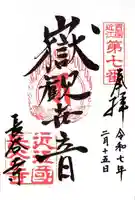 奉拝
令和七年
二月十五日
西国
近江
第七番
嶽観世音
長谷寺